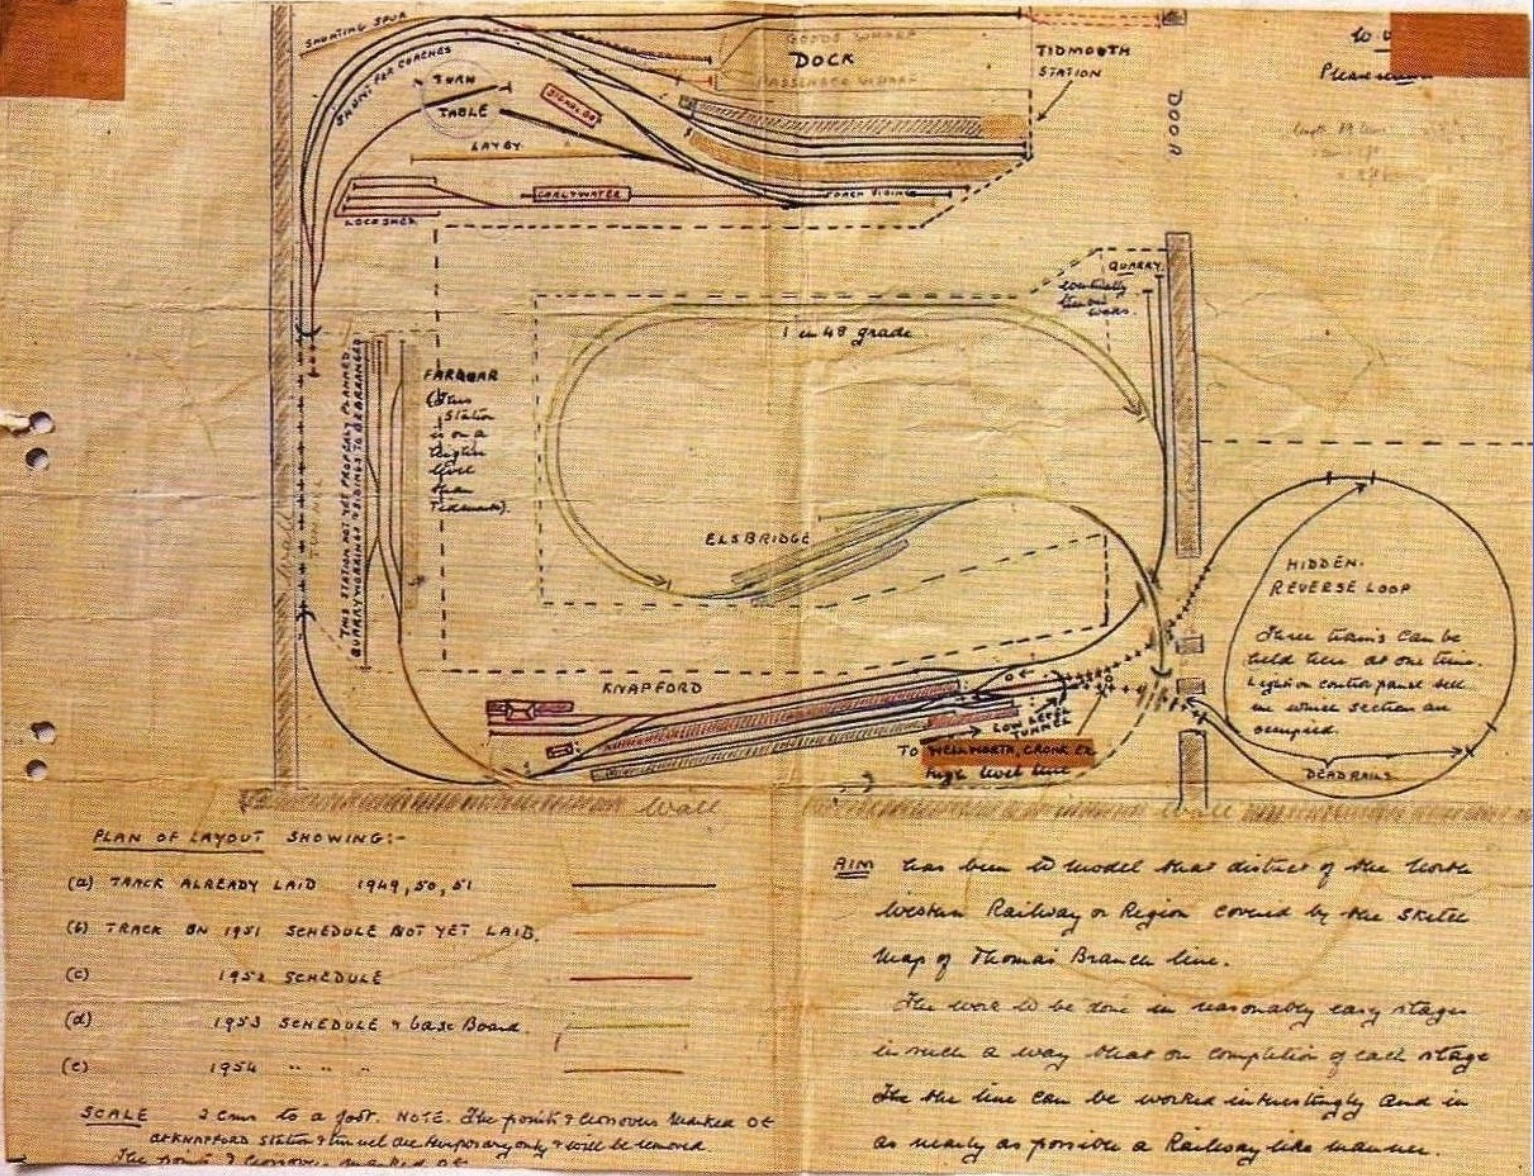 Please return
SHUNTING SPUR
SHUNT FOR COACHES
GOODS WHARF
DOCK
PASSENGER WHARF
TIDMOUTH
STATION
DOOR
TURN
TABLE
SIGNAL BOX
LAY BY
COAL & WATER
COACH SIDING
LOCO SHED
QUARRY
eventually
tier on
works.
1 in 48 grade
FARQUAR
(This
Station
is on a
higher
level
than
Tidmouth).
THIS STATION NOT YET PROPERLY PLANNED
QUARRY WORKINGS & SIDINGS TO BE ARRANGED
TUNNEL
Wall
ELSBRIDGE
HIDDEN
REVERSE LOOP
Three trains can be
held here at one time.
Lights on control panel tell
me which section are
occupied.
DEAD RAILS
KNAPFORD
LOW LEVEL
TUNNEL
TO WELLWORTH, CRONK Etc
high level line
Wall
Wall
PLAN OF LAYOUT SHOWING:-
(a) TRACK ALREADY LAID 1949, 50, 51
(b) TRACK ON 1951 SCHEDULE NOT YET LAID.
(c) 1952 SCHEDULE
(d) 1953 SCHEDULE & base Board.
(e) 1954 " " "
SCALE 2 cms to a foot. NOTE. The points & crossovers marked OE
at KNAPFORD Station & tunnel are temporary only & will be removed.
The points & crossovers marked OE
AIM has been to model that district of the North
Western Railway or Region covered by the Sketch
Map of Thomas' Branch line.
The work to be done in reasonably easy stages
in such a way that on completion of each stage
the the line can be worked interestingly and in
as nearly as possible a Railway like manner.